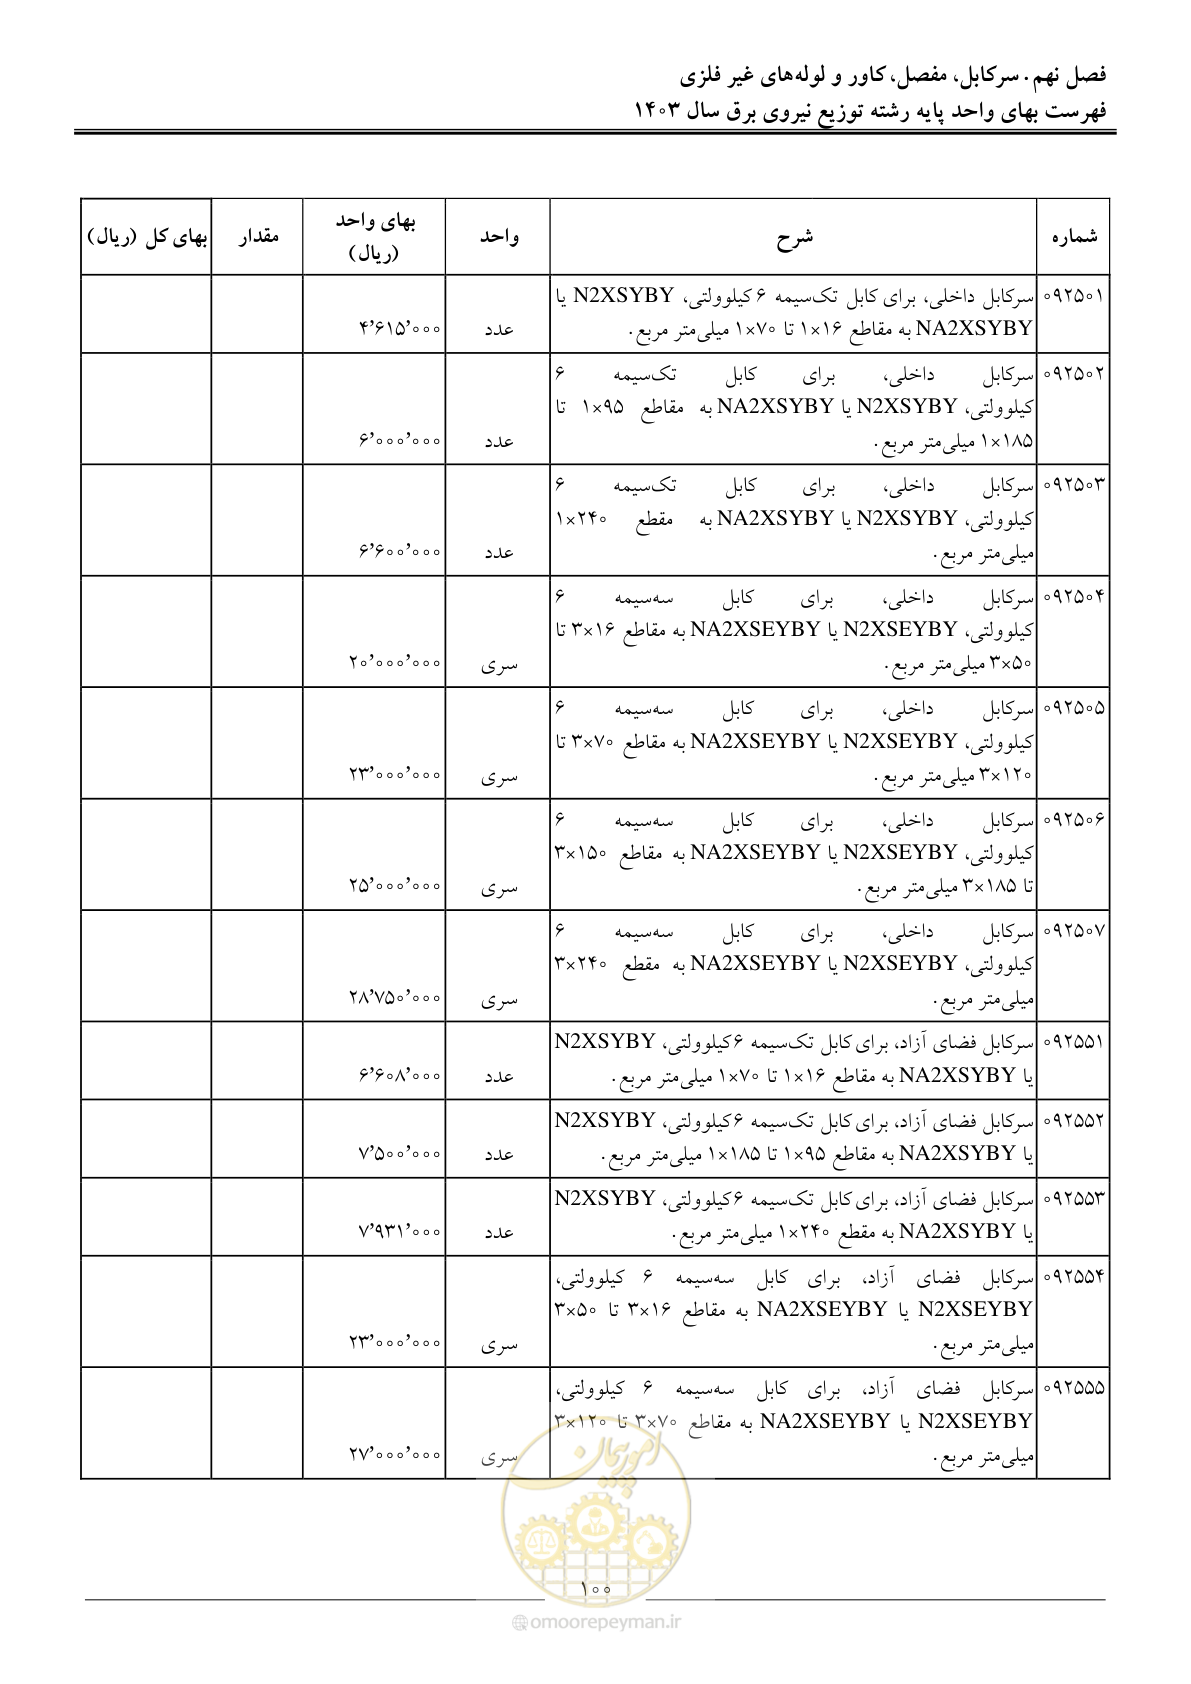 فصل نهم. سرکابل، مفصل، کاور و لوله‌های غیر فلزی
فهرست بهای واحد پایه رشته توزیع نیروی برق سال ۱۴۰۳
شماره شرح واحد بهای واحد (ریال) مقدار بهای کل (ریال)
۰۹۲۵۰۱ سرکابل داخلی، برای کابل تک‌سیمه ۶ کیلوولتی، N2XSYBY یا
NA2XSYBY به مقاطع ۱×۱۶ تا ۱×۷۰ میلی‌متر مربع. عدد ۴٬۶۱۵٬۰۰۰
۰۹۲۵۰۲ سرکابل داخلی، برای کابل تک‌سیمه ۶
کیلوولتی، N2XSYBY یا NA2XSYBY به مقاطع ۱×۹۵ تا
۱×۱۸۵ میلی‌متر مربع. عدد ۶٬۰۰۰٬۰۰۰
۰۹۲۵۰۳ سرکابل داخلی، برای کابل تک‌سیمه ۶
کیلوولتی، N2XSYBY یا NA2XSYBY به مقطع ۱×۲۴۰
میلی‌متر مربع. عدد ۶٬۶۰۰٬۰۰۰
۰۹۲۵۰۴ سرکابل داخلی، برای کابل سه‌سیمه ۶
کیلوولتی، N2XSEYBY یا NA2XSEYBY به مقاطع ۳×۱۶ تا
۳×۵۰ میلی‌متر مربع. سری ۲۰٬۰۰۰٬۰۰۰
۰۹۲۵۰۵ سرکابل داخلی، برای کابل سه‌سیمه ۶
کیلوولتی، N2XSEYBY یا NA2XSEYBY به مقاطع ۳×۷۰ تا
۳×۱۲۰ میلی‌متر مربع. سری ۲۳٬۰۰۰٬۰۰۰
۰۹۲۵۰۶ سرکابل داخلی، برای کابل سه‌سیمه ۶
کیلوولتی، N2XSEYBY یا NA2XSEYBY به مقاطع ۳×۱۵۰
تا ۳×۱۸۵ میلی‌متر مربع. سری ۲۵٬۰۰۰٬۰۰۰
۰۹۲۵۰۷ سرکابل داخلی، برای کابل سه‌سیمه ۶
کیلوولتی، N2XSEYBY یا NA2XSEYBY به مقطع ۳×۲۴۰
میلی‌متر مربع. سری ۲۸٬۷۵۰٬۰۰۰
۰۹۲۵۵۱ سرکابل فضای آزاد، برای کابل تک‌سیمه ۶کیلوولتی، N2XSYBY
یا NA2XSYBY به مقاطع ۱×۱۶ تا ۱×۷۰ میلی‌متر مربع. عدد ۶٬۶۰۸٬۰۰۰
۰۹۲۵۵۲ سرکابل فضای آزاد، برای کابل تک‌سیمه ۶کیلوولتی، N2XSYBY
یا NA2XSYBY به مقاطع ۱×۹۵ تا ۱×۱۸۵ میلی‌متر مربع. عدد ۷٬۵۰۰٬۰۰۰
۰۹۲۵۵۳ سرکابل فضای آزاد، برای کابل تک‌سیمه ۶کیلوولتی، N2XSYBY
یا NA2XSYBY به مقطع ۱×۲۴۰ میلی‌متر مربع. عدد ۷٬۹۳۱٬۰۰۰
۰۹۲۵۵۴ سرکابل فضای آزاد، برای کابل سه‌سیمه ۶ کیلوولتی،
N2XSEYBY یا NA2XSEYBY به مقاطع ۳×۱۶ تا ۳×۵۰
میلی‌متر مربع. سری ۲۳٬۰۰۰٬۰۰۰
۰۹۲۵۵۵ سرکابل فضای آزاد، برای کابل سه‌سیمه ۶ کیلوولتی،
N2XSEYBY یا NA2XSEYBY به مقاطع ۳×۷۰ تا ۳×۱۲۰
میلی‌متر مربع. سری ۲۷٬۰۰۰٬۰۰۰
امور پیمان
۱۰۰
omoorepeyman.ir